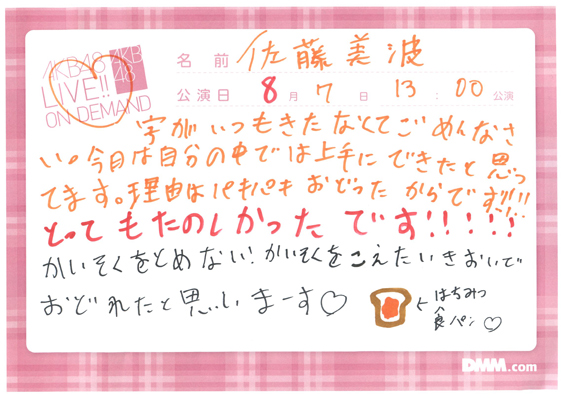 AKB48
LIVE!!
ON DEMAND
AKB
48
名前 佐藤美波
公演日 8月7日 13:00公演
字がいつもきたなくてごめんなさ
い。今日は自分の中では上手にできたと思っ
てます。理由はパキパキおどったからです!!!
とってもたのしかったです!!!!!
かいそくをとめない!かいそくをこえたいきおいで
おどれたと思いまーす♡
←はちみつ
食パン♡
DMM.com